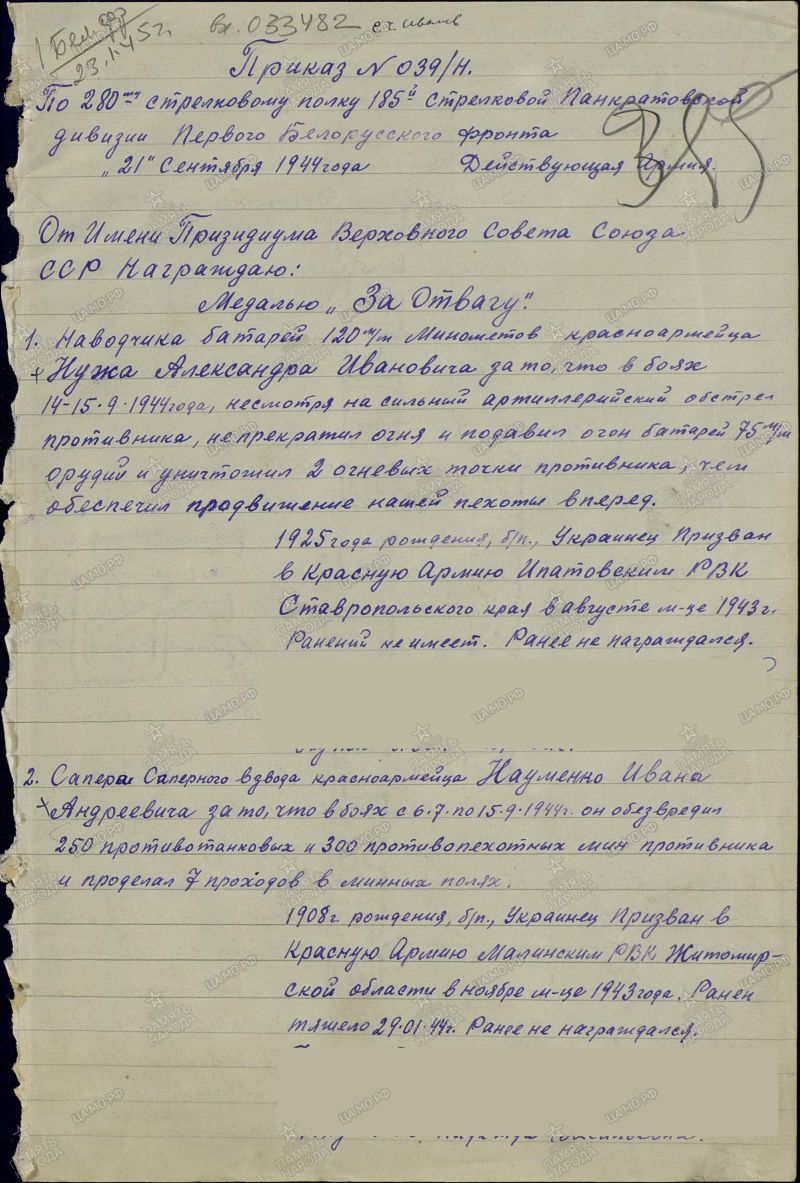 1 Бел. фр
23.1.45г
вх. 033482
Приказ N 039/н.
По 280му стрелковому полку 185й стрелковой Панкратовской
дивизии Первого Белорусского фронта
"21" Сентября 1944 года Действующая Армия.
От Имени Призидиума Верховного Совета Союза
ССР Награждаю:
Медалью „За Отвагу".
1. Наводчика батарей 120 м/м Минометов красноармейца
+ Нужа Александра Ивановича за то, что в боях
14-15.9.1944 года, несмотря на сильный артиллерийский обстрел
противника, не прекратил огня и подавил огон батарей 75 м/м
орудий и уничтожил 2 огневых точки противника, чем
обеспечил продвижение нашей пехоты вперед.
1925 года рождения, б/п., Украинец Призван
в Красную Армию Ипатовским РВК
Ставропольского края в августе м-це 1943 г.
Ранений не имеет. Ранее не награждался.
2. Сапера Саперного взвода красноармейца Науменко Ивана
+ Андреевича за то, что в боях с 6.7. по 15.9.1944г. он обезвредил
250 противотанковых и 300 противопехотных мин противника
и проделал 7 проходов в минных полях.
1908 г. рождения, б/п., Украинец Призван в
Красную Армию Малинским РВК Житомир-
ской области в ноябре м-це 1943 года. Ранен
тяжело 29.01.44г. Ранее не награждался.